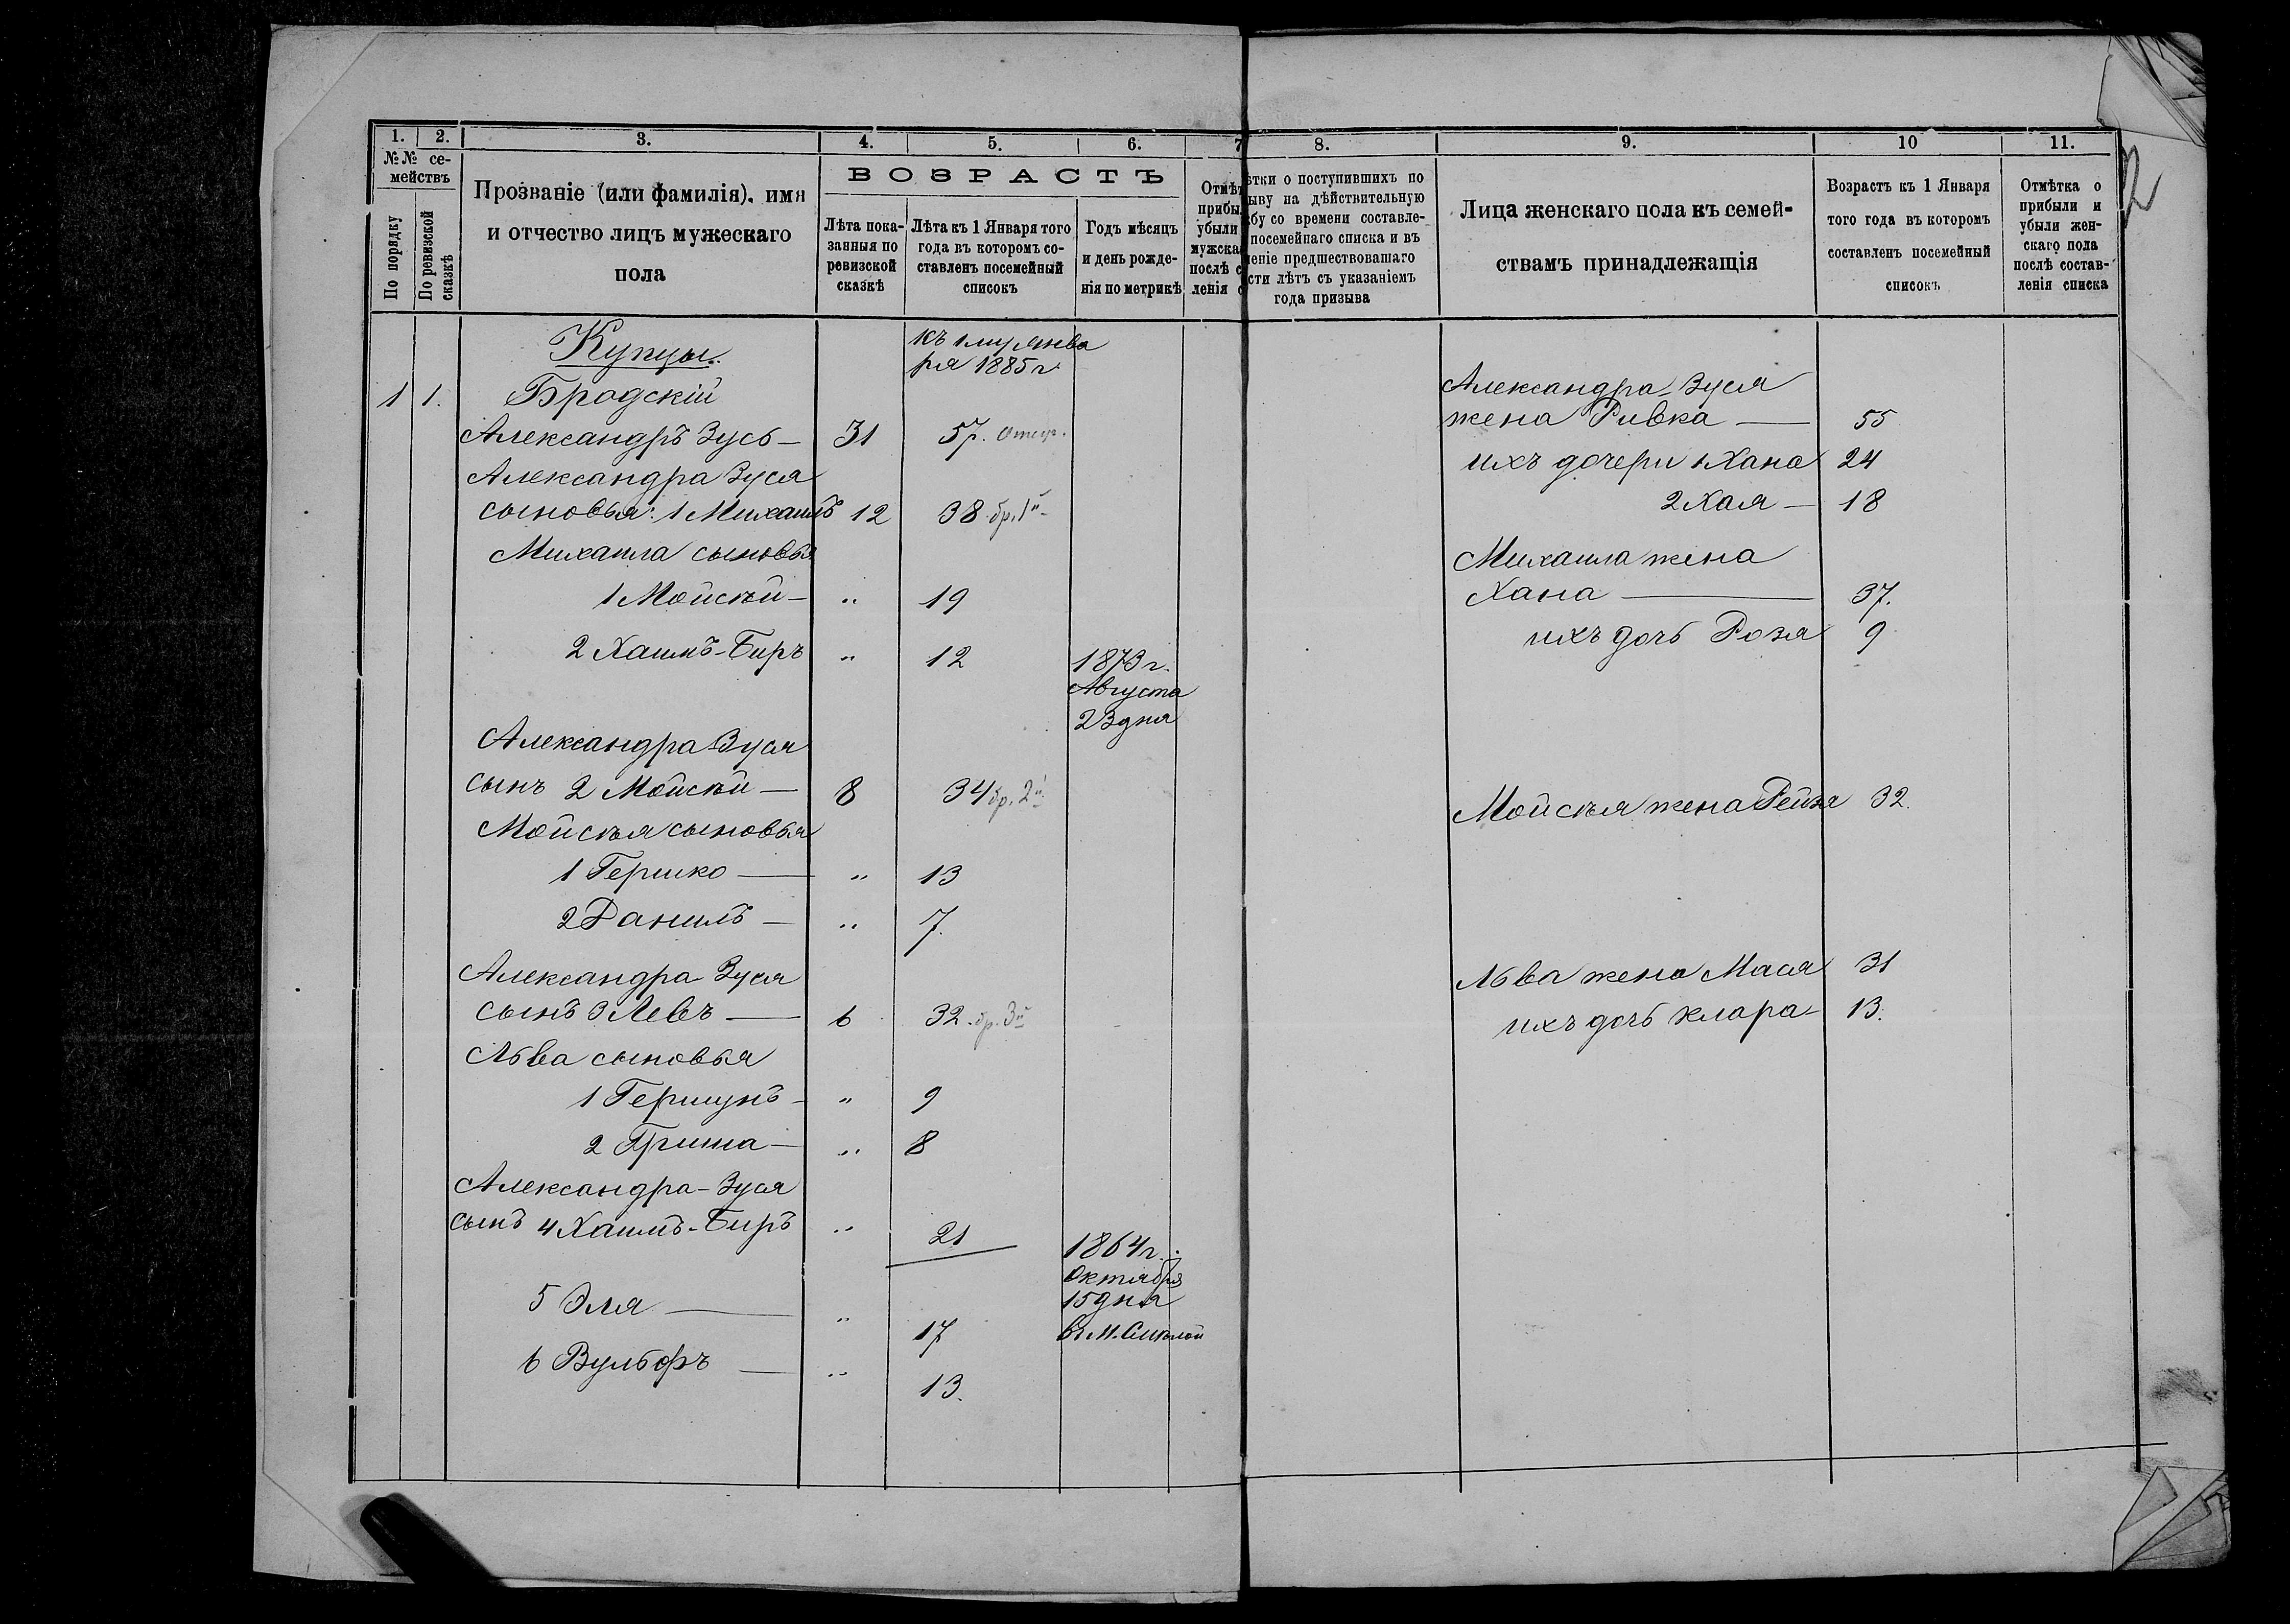 1. 2. 3. 4. 5. 6. 7 8. 9. 10 11.
№№ се-
мействъ
По порядку
По ревизской
сказкѣ
Прозваніе (или фамилія), имя
и отчество лицъ мужескаго
пола
ВОЗРАСТЪ
Лѣта пока-
занныя по
ревизской
сказкѣ
Лѣта къ 1 Января того
года въ которомъ со-
ставленъ посемейный
списокъ
Годъ мѣсяцъ
и день рожде-
нія по метрикѣ
Отмѣт
прибы
убыли
мужска
послѣ с
ленія с
ѣтки о поступившихъ по
ыву на дѣйствительную
бу со времени составле-
посемейнаго списка и въ
еніе предшествовашаго
сти лѣтъ съ указаніемъ
года призыва
Лица женскаго пола къ семей-
ствамъ принадлежащія
Возрастъ къ 1 Января
того года въ которомъ
составленъ посемейный
списокъ
Отмѣтка о
прибыли и
убыли жен-
скаго пола
послѣ состав-
ленія списка
2
Купцы.
къ 1му янва
ря 1885 г.
1 1. Бродскій
Александръ Зусь — 31 57. отец.
Александра Зуся
сыновья: 1 Михаилъ 12 38 бр. 1й
Михаила сыновья
1 Мойсѣй — " 19
2 Хаимъ-Беръ " 12 1873 г.
Августа
23 дня
Александра Зуся
сынъ 2 Мойсѣй — 8 34 бр. 2й
Мойсѣя сыновья
1 Гершко — " 13
2 Данилъ — " 7.
Александра Зуся
сынъ 3 Левъ — 6 32 бр. 3й
Льва сыновья
1 Гершунъ — " 9
2 Гриша — " 8
Александра-Зуся
сынъ 4 Хаимъ-Беръ " 21 1864 г.
Октября
15 дня
въ М. Смѣлой
5 Эля — " 17
6 Вульфъ — " 13.
Александра Зуся
жена Ривка — 55
ихъ дочери 1 Хана 24
2 Хая — 18
Михаила жена
Хана — 37.
ихъ дочь Розя 9
Мойсѣя жена Рейзя 32.
Льва жена Мася 31
ихъ дочь Клара 13.